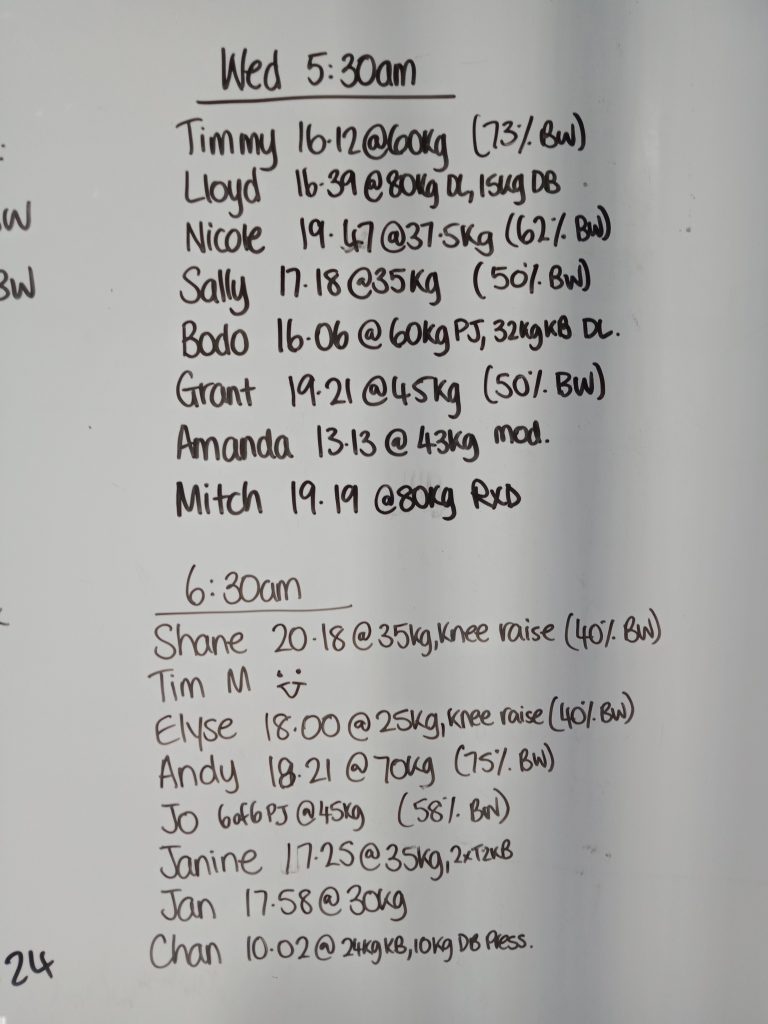 Wed 5:30am
Timmy 16.12@60kg (73% BW)
Lloyd 16.39@80kg DL, 15kg DB
Nicole 19.47@37.5kg (62% BW)
Sally 17.18@35kg (50% BW)
Bodo 16.06@60kg PJ, 32kg KB DL.
Grant 19.21@45kg (50% BW)
Amanda 13.13@43kg mod.
Mitch 19.19 @80kg RXD
6:30am
Shane 20.18@35kg, knee raise (40% BW)
Tim M
Elyse 18.00@25kg, knee raise (40% BW)
Andy 18.21@70kg (75% BW)
Jo 6of6 PJ@45kg (58% BW)
Janine 17.25@35kg, 2xT2KB
Jan 17.58@30kg
Chan 10.02@24kg KB, 10kg DB Press.
BW
24